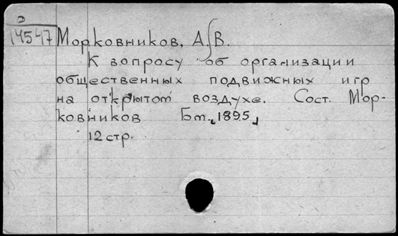 D
14547 Морковников, А. В.
К вопросу об организации
общественных подвижных игр
на открытом воздухе. Сост. Мор-
ковников Бм, 1895,
12 стр.